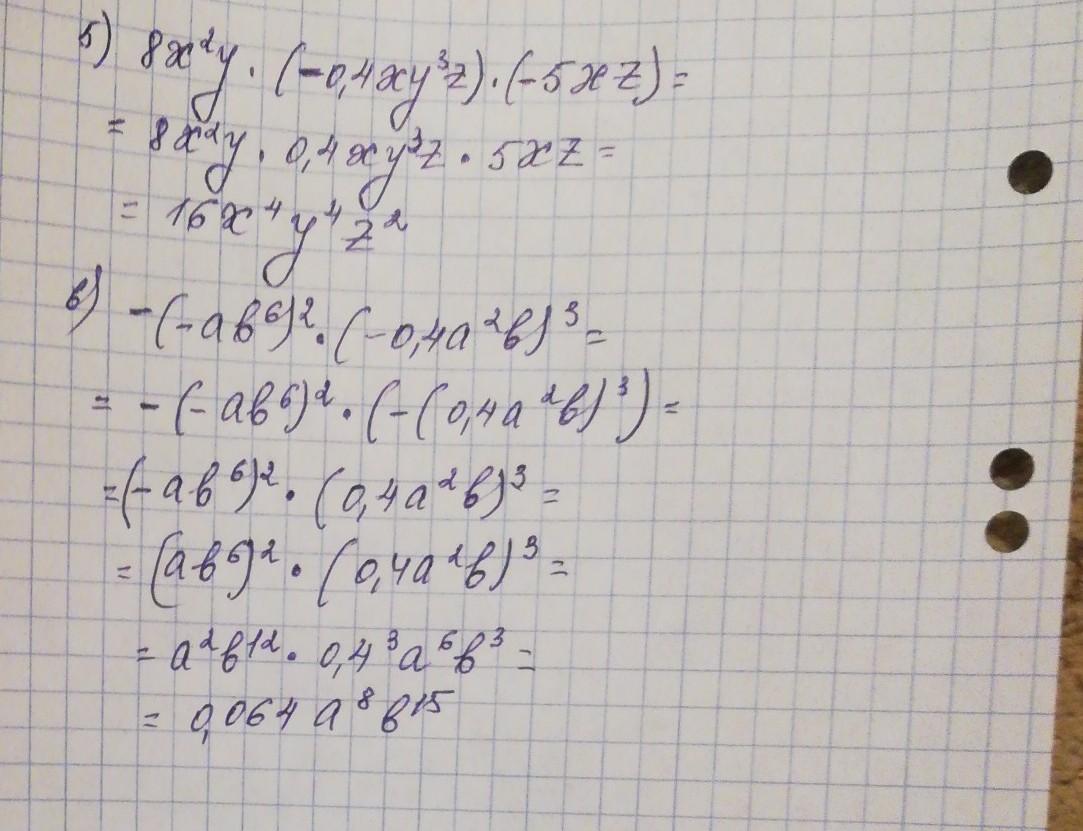 5) 8x²y · (-0,4xy³z) · (-5xz) =
= 8x²y · 0,4xy³z · 5xz =
= 16x⁴y⁴z²
в) -(-ab⁶)² · (-0,4a²b)³ =
= -(-ab⁶)² · (-(0,4a²b)³) =
= (-ab⁶)² · (0,4a²b)³ =
= (ab⁶)² · (0,4a²b)³ =
= a²b¹² · 0,4³a⁶b³ =
= 0,064a⁸b¹⁵